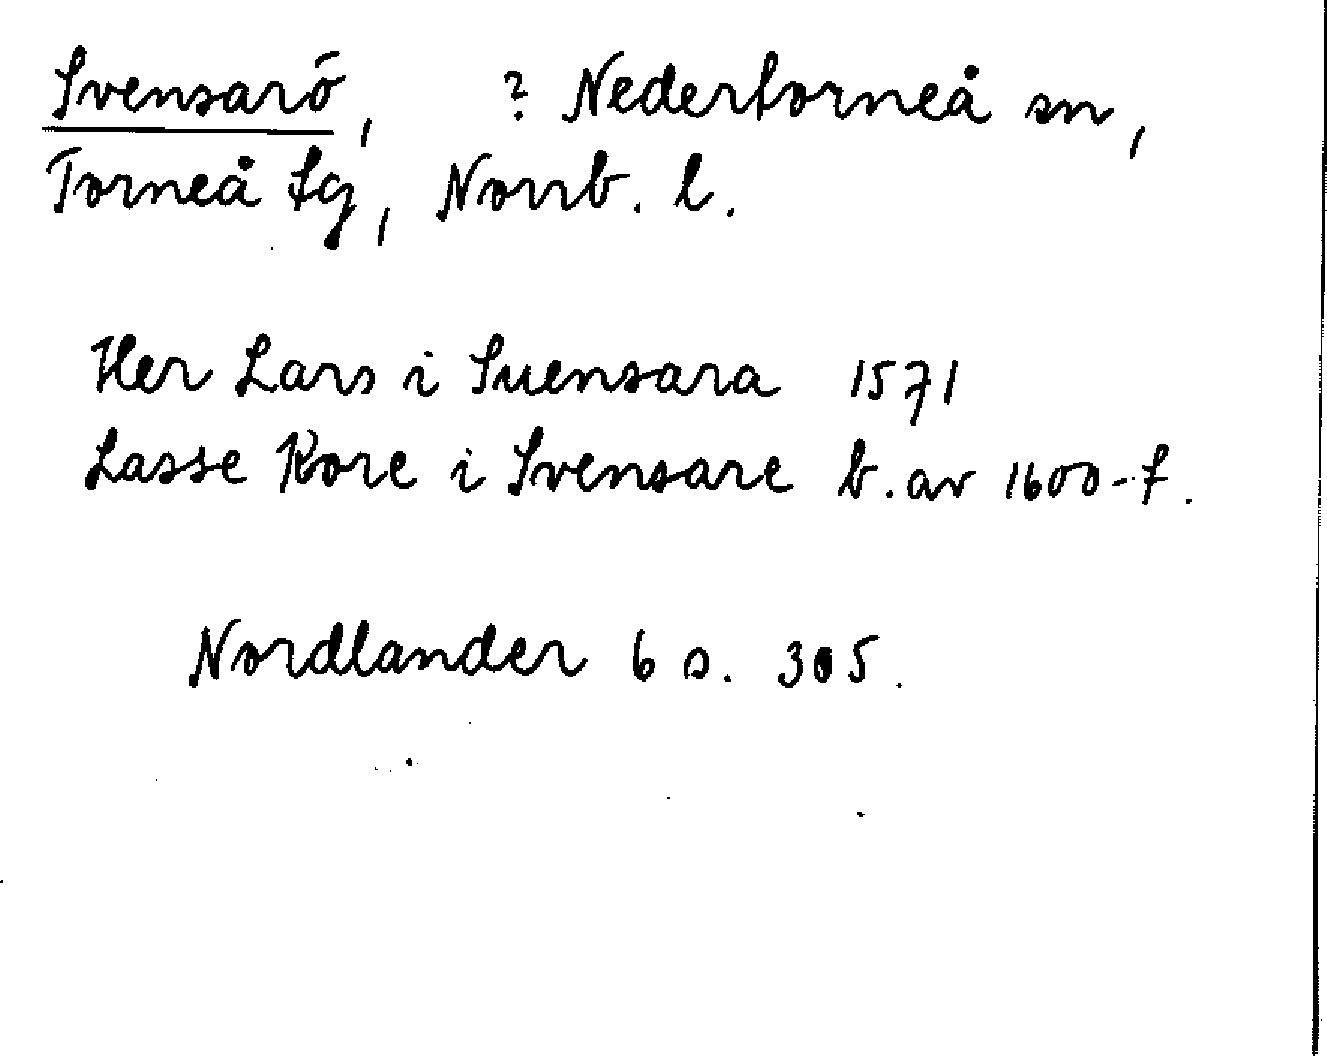 Svensarö, ? Nedertorneå sn,
Torneå tg, Norrb. l.
Her Lars i Suensara 1571
Lasse Kore i Svensare b. av 1600-t.
Nordlander 6 s. 305.